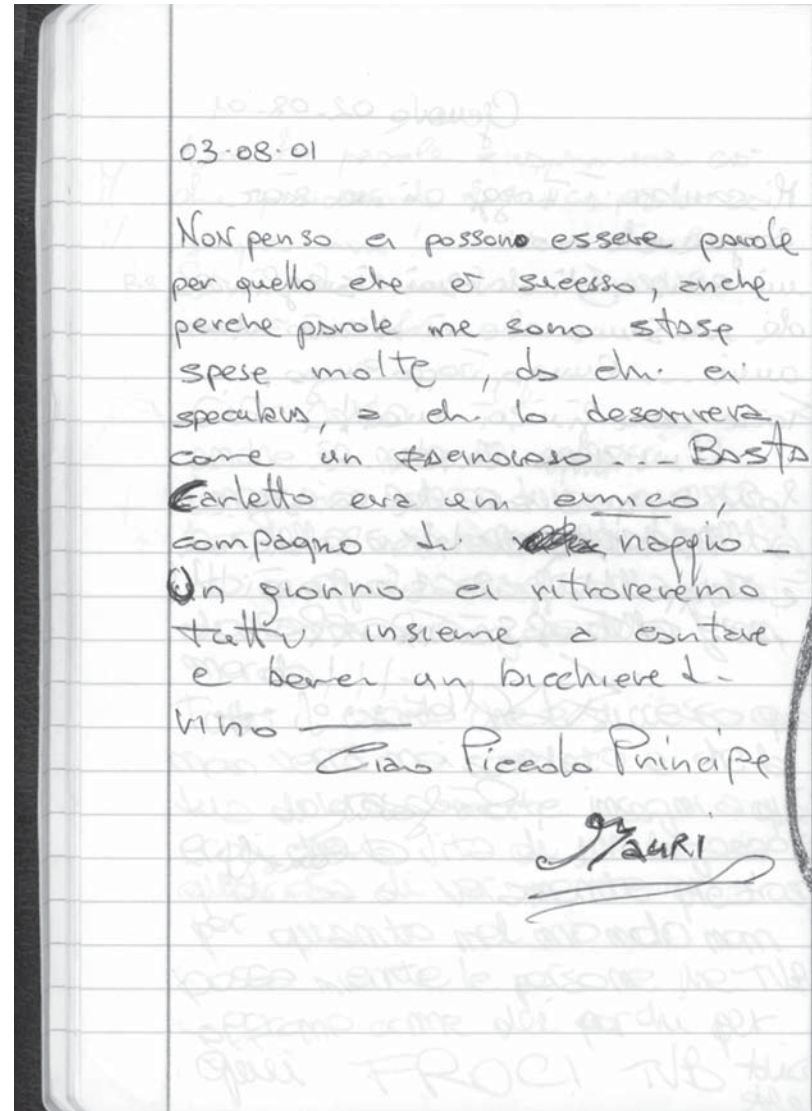 03-08-01
Non penso ci possono essere parole
per quello che è sucesso, anche
perche parole me sono stase
spese molte, da chi ci
speculava, a chi lo descrivera
come un facinoroso... Basta
Carletto era um amico,
compagno di viaggio -
Un giorno ci ritroveremo
tutti insieme a cantare
e berci un bicchiere di
vino
Ciao Piccolo Principe
Mauri